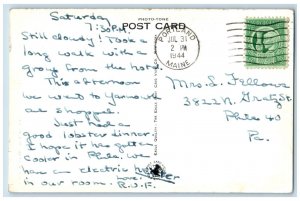 Saturday
7:30 P.M.
PHOTO-TONE
POST CARD
Still cloudy! Took a
long walk with a
group from the hotel.
This afternoon
we went to Yarmouth
as shopped.
Just had a
good lobster dinner.
I hope it has gotten
cooler in Phila. We
have an electric heater
in our room. Love.
R.J.F.
PORTLAND
JUL 31
2 PM
1944
MAINE
Mrs. S. Fellows
3822 N. Gratz St.
Phila 40
Pa.